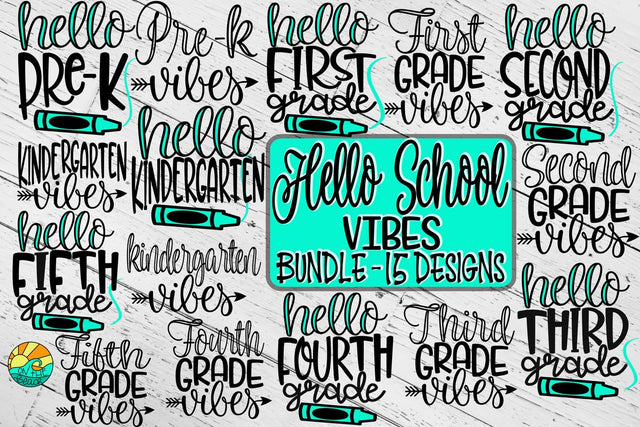 hello
PRE-K
Pre-k
vibes
hello
FIRST
grade
First
GRADE
vibes
hello
SECOND
grade
KINDERGARTEN
vibes
hello
KINDERGARTEN
Hello School
VIBES
BUNDLE - 15 DESIGNS
Second
GRADE
vibes
hello
FIFTH
grade
kindergarten
vibes
hello
THIRD
grade
Fifth
GRADE
vibes
Fourth
GRADE
vibes
hello
FOURTH
grade
Third
GRADE
vibes